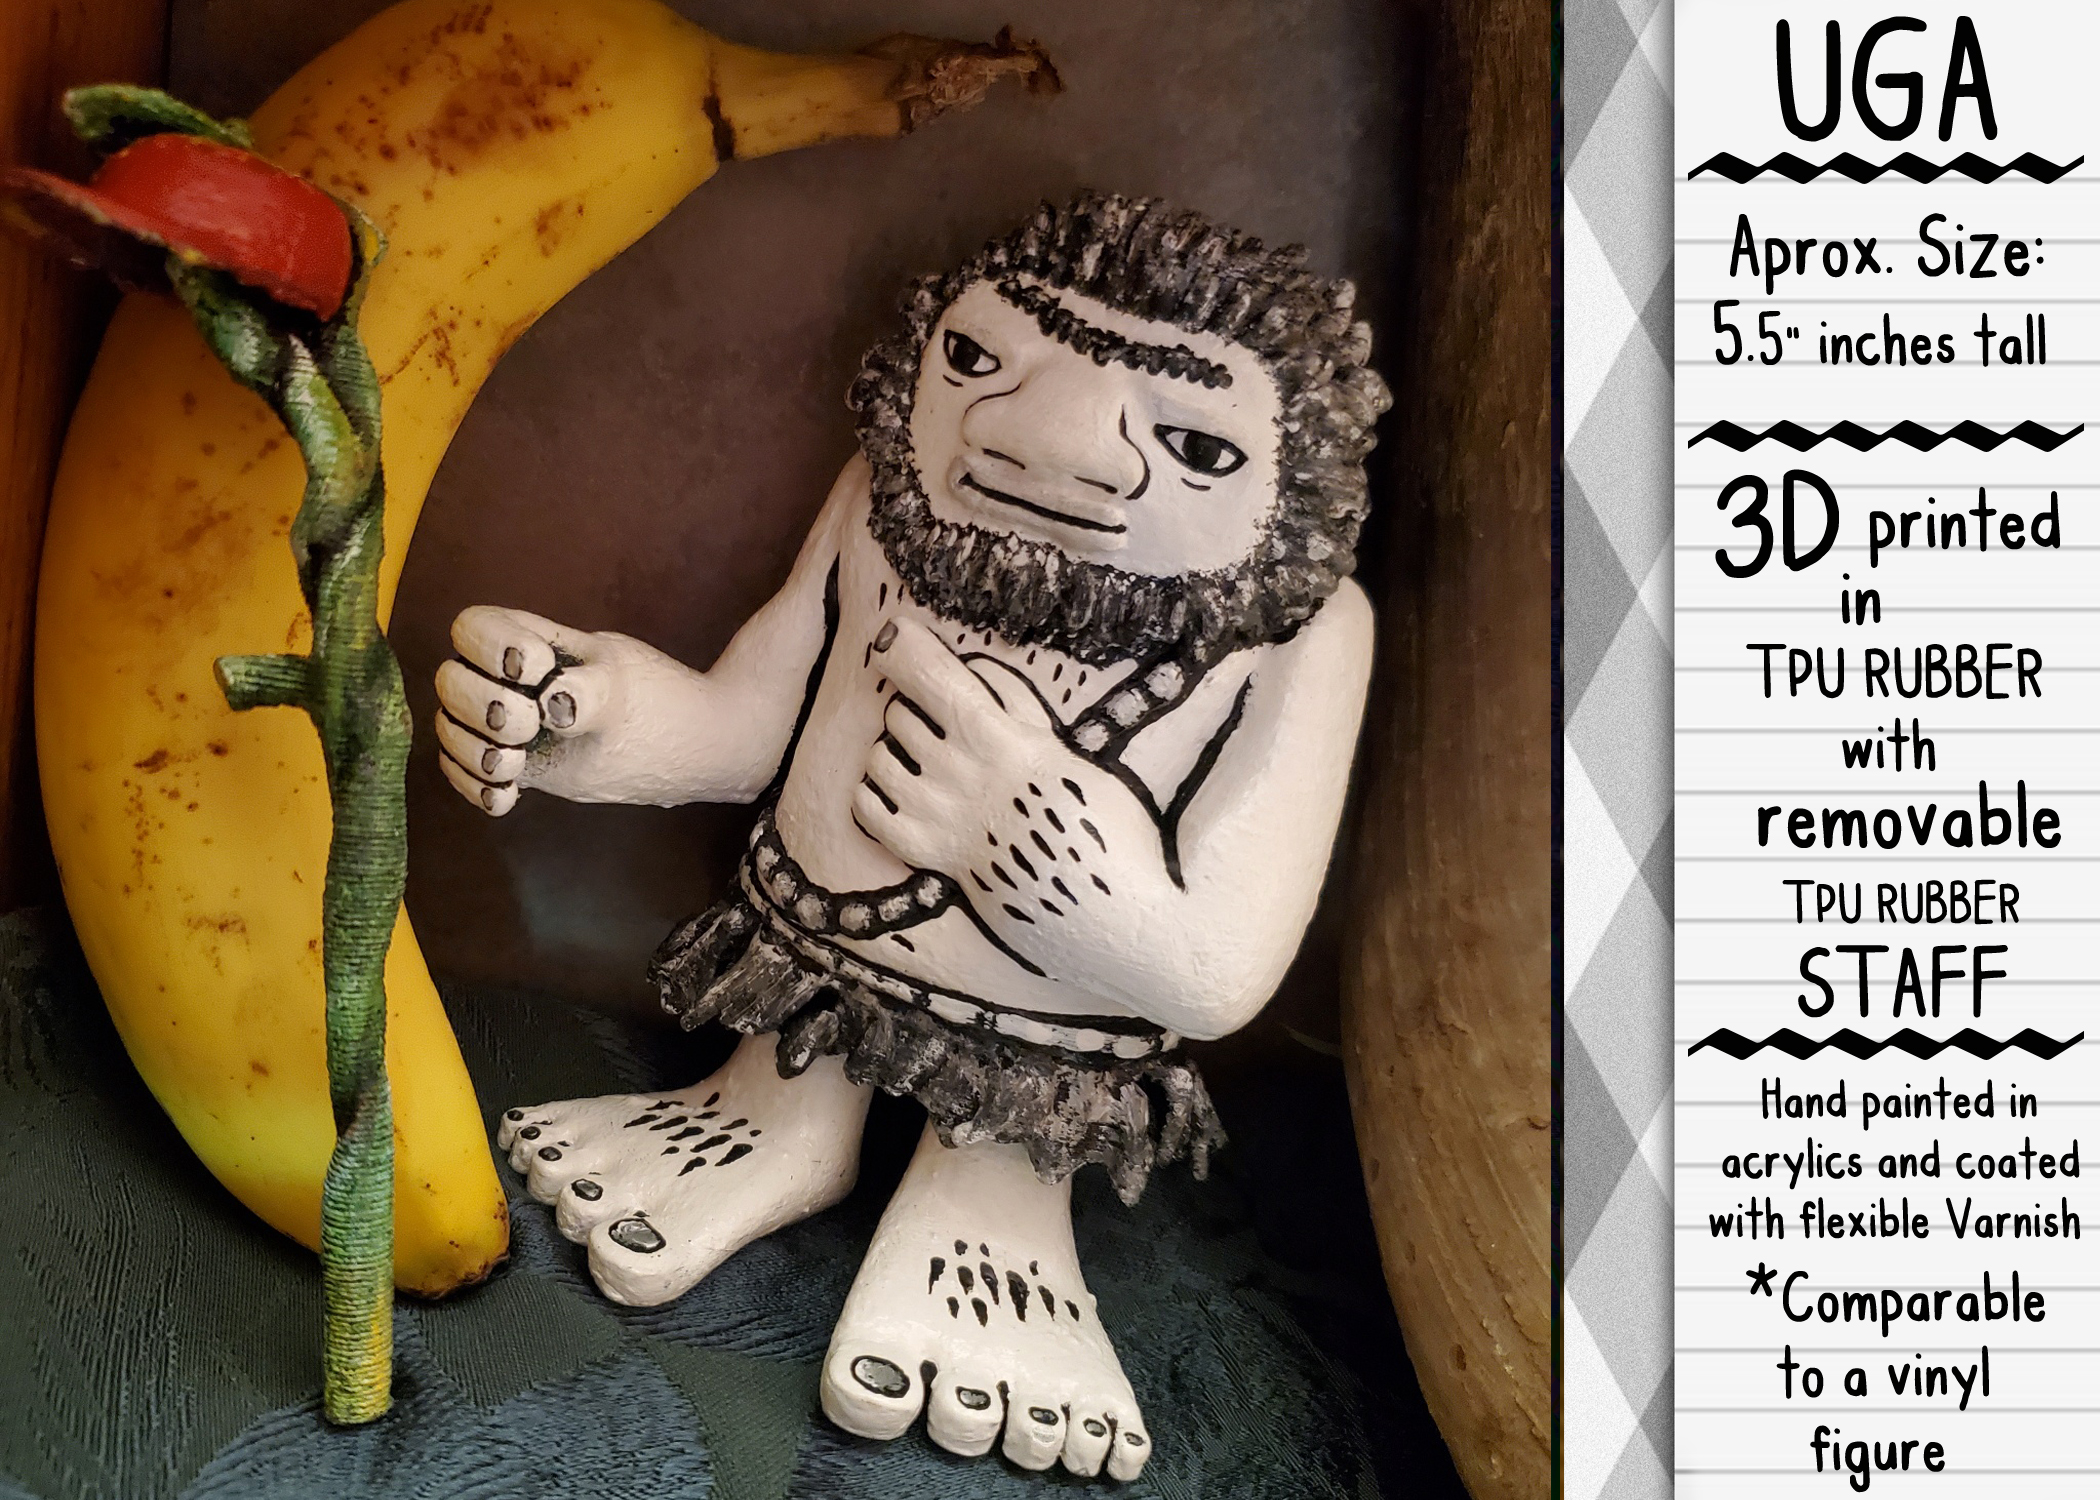 UGA
Aprox. Size:
5.5" inches tall
3D printed
in
TPU RUBBER
with
removable
TPU RUBBER
STAFF
Hand painted in
acrylics and coated
with flexible Varnish
*Comparable
to a vinyl
figure